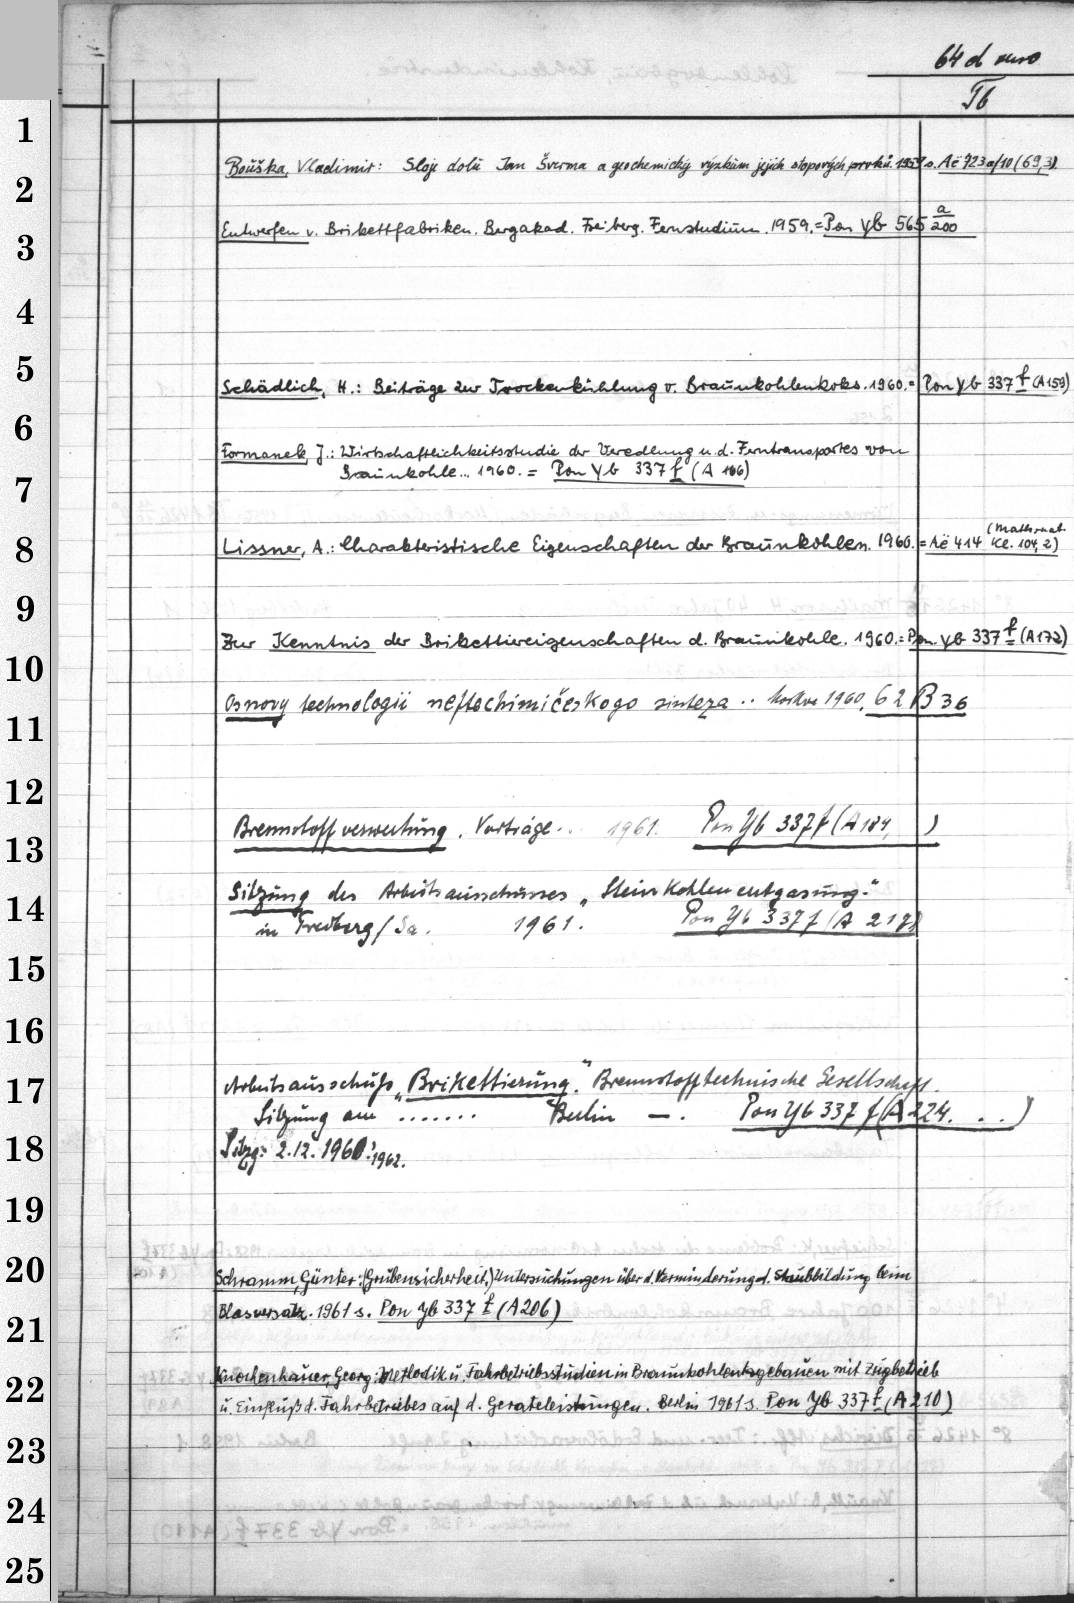 64 d verso
Tb
1
Bouška, Vladimir: Sloje dolů Jan Šverma a geochemický výzkum jejich stopových prvků. 1959 s. Aë 723 a/10 (69,3)
2
Entwerfen v. Brikettfabriken. Bergakad. Freiberg. Fernstudium. 1959. = Pon Yb 565 a/200
3
4
5
Schädlich, H.: Beiträge zur Trockenkühlung v. Braunkohlenkoks. 1960. = Pon Yb 337 f (A 159)
6
Formanek, J.: Wirtschaftlichkeitsstudie der Veredlung u. d. Ferntransportes von
Braunkohle... 1960. = Pon Yb 337 f (A 166)
7
(Mathnat.
8
Lissner, A.: Charakteristische Eigenschaften der Braunkohlen. 1960. = Aë 414 Kl. 104,2)
9
Zur Kenntnis der Brikettiereigenschaften d. Braunkohle. 1960. = Pon Yb 337 f (A 172)
10
Osnovy technologii neftechimičeskogo sinteza .. Moskva 1960. 62 B 36
11
12
Brennstoffverwertung. Vorträge... 1961. Pon Yb 337 f (A 184, )
13
Sitzung des Arbeitsausschusses „Steinkohlenentgasung."
14
in Freiberg/Sa. 1961. Pon Yb 337 f (A 217)
15
16
17
Arbeitsausschuß „Brikettierung." Brennstofftechnische Gesellschaft.
Sitzung am ....... Berlin —. Pon Yb 337 f (A 224. ...)
18
Sitzg: 2.12.1960: 1962.
19
20
Schramm, Günter: (Grubensicherheit.) Untersuchungen über d. Verminderung d. Staubbildung beim
Blasversatz. 1961 s. Pon Yb 337 f (A 206)
21
Knochenhauer, Georg: Methodik u. Fahrbetriebsstudien in Braunkohlentagebauen mit Zugbetrieb
22
u. Einfluß d. Fahrbetriebes auf d. Geräteleistungen. Berlin 1961 s. Pon Yb 337 f (A 210)
23
24
25